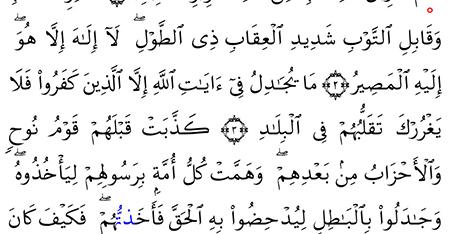 وَقَابِلِ ٱلتَّوۡبِ شَدِيدِ ٱلۡعِقَابِ ذِي ٱلطَّوۡلِۖ لَآ إِلَٰهَ إِلَّا هُوَۖ
إِلَيۡهِ ٱلۡمَصِيرُ ٢ مَا يُجَٰدِلُ فِيٓ ءَايَٰتِ ٱللَّهِ إِلَّا ٱلَّذِينَ كَفَرُواْ فَلَا
يَغۡرُرۡكَ تَقَلُّبُهُمۡ فِي ٱلۡبِلَٰدِ ٣ كَذَّبَتۡ قَبۡلَهُمۡ قَوۡمُ نُوحٖ
وَٱلۡأَحۡزَابُ مِنۢ بَعۡدِهِمۡۖ وَهَمَّتۡ كُلُّ أُمَّةِۭ بِرَسُولِهِمۡ لِيَأۡخُذُوهُۖ
وَجَٰدَلُواْ بِٱلۡبَٰطِلِ لِيُدۡحِضُواْ بِهِ ٱلۡحَقَّ فَأَخَذتُّهُمۡۖ فَكَيۡفَ كَانَ